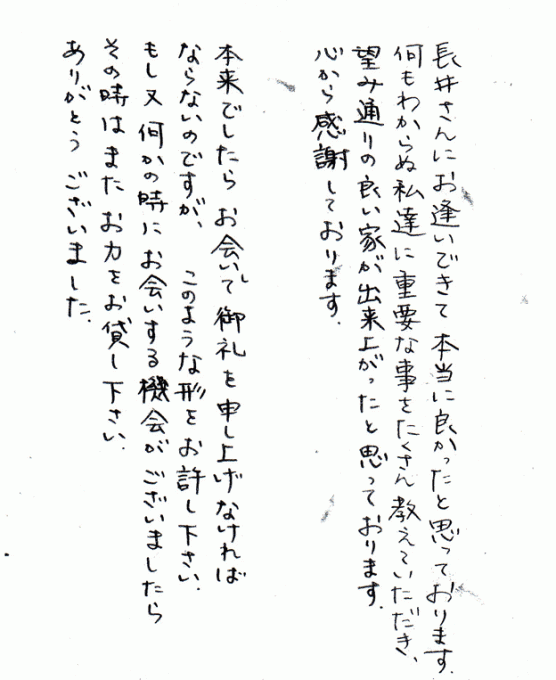 長井さんにお逢いできて 本当に良かったと思っております.
何もわからぬ私達に重要な事をたくさん教えていただき、
望み通りの良い家が出来上がったと思っております.
心から感謝しております.
本来でしたら お会いして御礼を申し上げなければ
ならないのですが、 このような形をお許し下さい.
もし又 何かの時にお会いする機会がございましたら
その時はまたお力をお貸し下さい.
ありがとう ございました.